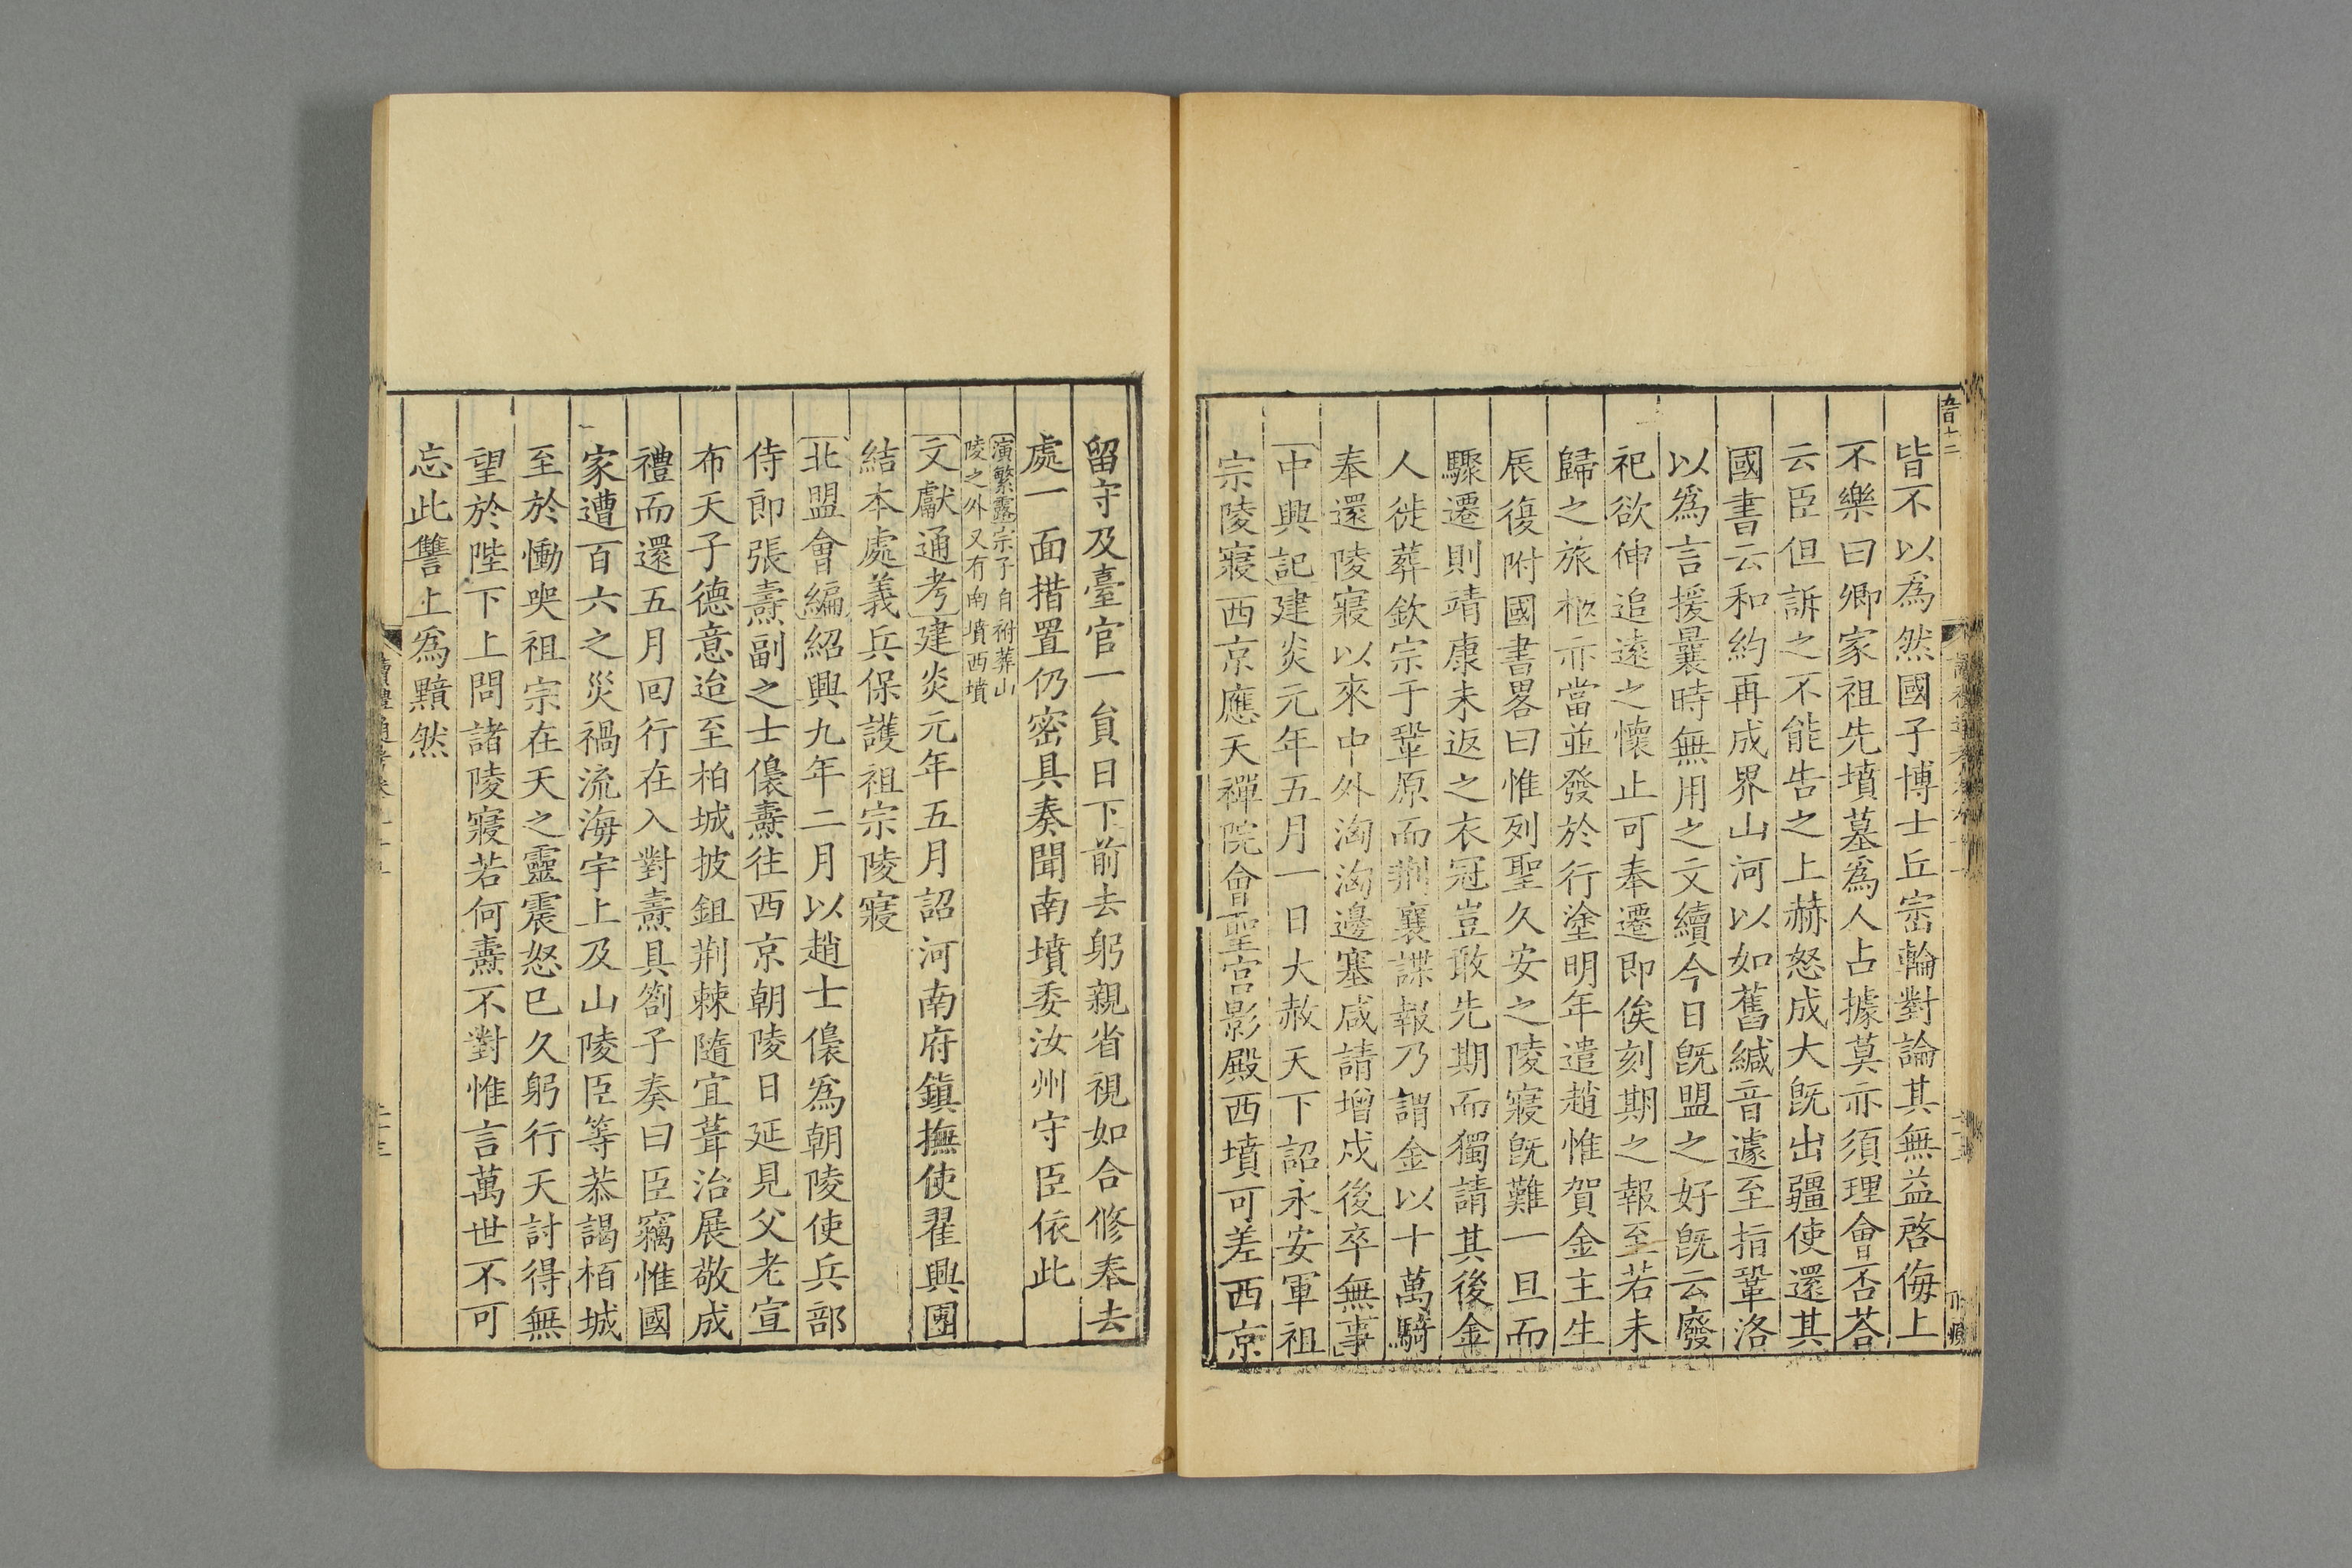 皆不以爲然國子博士丘崈輪對論其無益啓侮上
不樂曰卿家祖先墳墓爲人占據莫亦須理會否荅
云臣但訴之不能告之上赫怒成大旣出疆使還其
國書云和約再成界山河以如舊緘音遽至指鞏洛
以爲言援曩時無用之文續今日旣盟之好旣云廢
祀欲伸追遠之懷止可奉遷即俟刻期之報至若未
歸之旅柩亦當並發於行塗明年遣趙惟賀金主生
辰復附國書畧曰惟列聖久安之陵寢旣難一旦而
驟遷則靖康未返之衣冠豈敢先期而獨請其後金
人徙葬欽宗于鞏原而荆襄諜報乃謂金以十萬騎
奉還陵寢以來中外洶洶邊塞咸請增戍後卒無事
中興記建炎元年五月一日大赦天下詔永安軍祖
宗陵寢西京應天禪院會聖宫影殿西墳可差西京
留守及臺官一員日下前去躬親省視如合修奉去
處一面措置仍密具奏聞南墳委汝州守臣依此
演繁露宗子自祔葬山
陵之外又有南墳西墳
文獻通考建炎元年五月詔河南府鎮撫使翟興團
結本處義兵保護祖宗陵寢
北盟會編紹興九年二月以趙士㒟爲朝陵使兵部
侍即張燾副之士㒟燾往西京朝陵日延見父老宣
布天子德意迨至柏城披鉏荆棘隨宜葺治展敬成
禮而還五月回行在入對燾具劄子奏曰臣竊惟國
家遭百六之災禍流海宇上及山陵臣等恭謁栢城
至於慟哭祖宗在天之靈震怒已久躬行天討得無
望於陛下上問諸陵寢若何燾不對惟言萬世不可
忘此讐上爲黯然